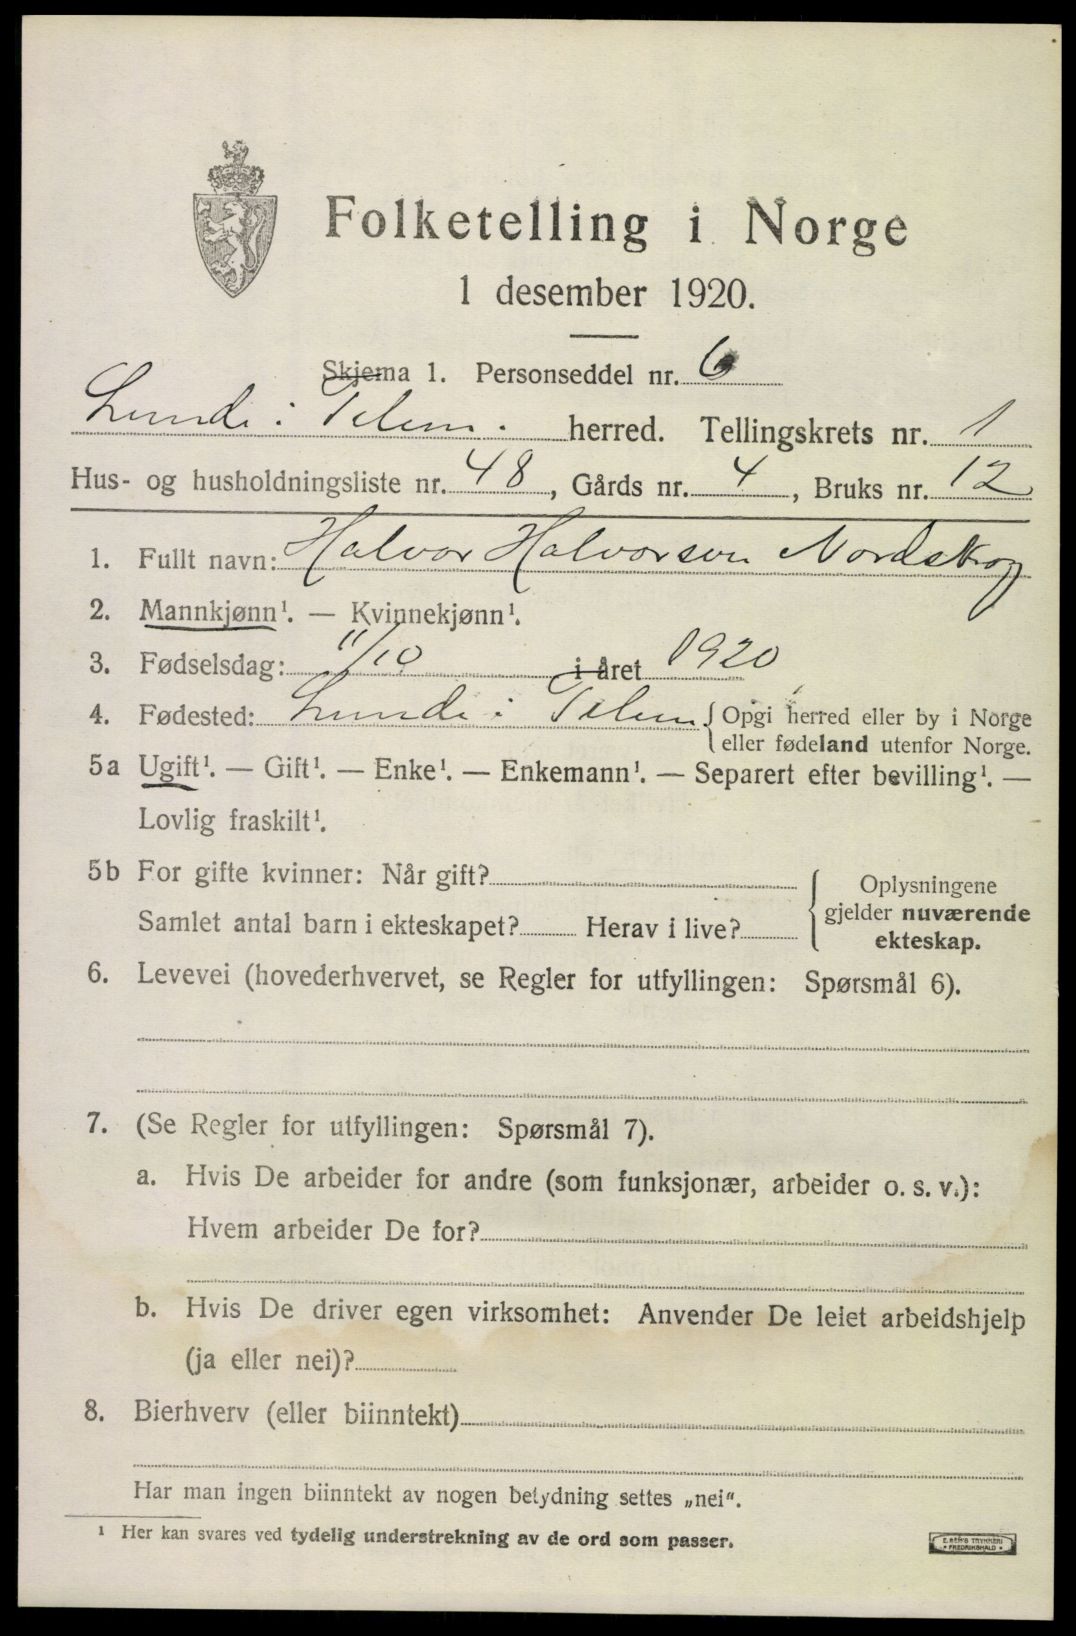 Folketelling i Norge
1 desember 1920.
Skjema 1. Personseddel nr. 6
Lunde i Telem. herred. Tellingskrets nr. 1
Hus- og husholdningsliste nr. 48, Gårds nr. 4, Bruks nr. 12
1. Fullt navn: Halvor Halvorsen Nordskog
2. Mannkjønn¹. — Kvinnekjønn¹.
3. Fødselsdag: 11/10 i året 1920
4. Fødested: Lunde i Telem. { Opgi herred eller by i Norge
eller fødeland utenfor Norge.
5a Ugift¹. — Gift¹. — Enke¹. — Enkemann¹. — Separert efter bevilling¹. —
Lovlig fraskilt¹.
5b For gifte kvinner: Når gift?
Samlet antal barn i ekteskapet? Herav i live?
{ Oplysningene
gjelder nuværende
ekteskap.
6. Levevei (hovederhvervet, se Regler for utfyllingen: Spørsmål 6).
7. (Se Regler for utfyllingen: Spørsmål 7).
a. Hvis De arbeider for andre (som funksjonær, arbeider o. s. v.):
Hvem arbeider De for?
b. Hvis De driver egen virksomhet: Anvender De leiet arbeidshjelp
(ja eller nei)?
8. Bierhverv (eller biinntekt)
Har man ingen biinntekt av nogen betydning settes „nei".
¹ Her kan svares ved tydelig understrekning av de ord som passer.
E. SEM'S TRYKKERI
• FREDRIKSHALD •